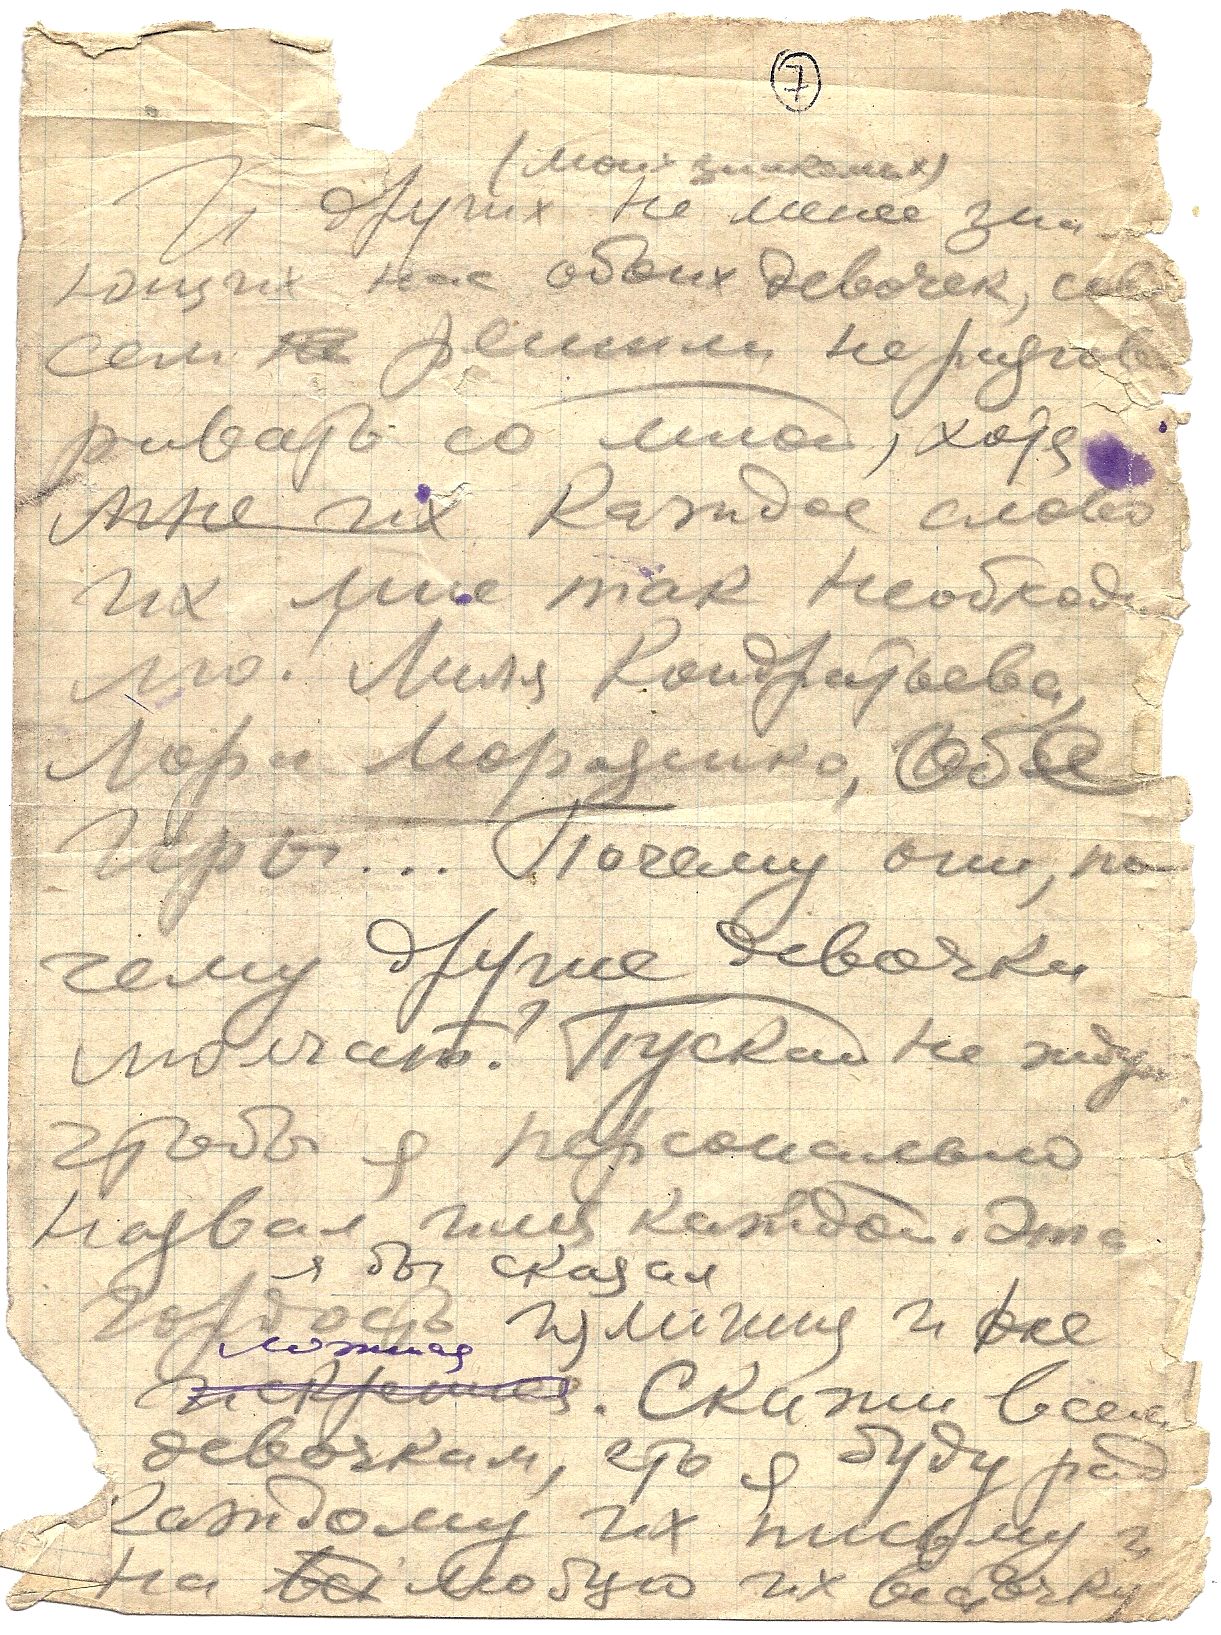 7
(моих знакомых)
И других не менее зна
ющих нас обоих девочек, сов
сем не решили не разгова
ривать со мной, хотя
мне их каждое слово
их мне так необходи
мо. Лиля Кондратьева,
Лора Морозенко, обе
Иры... Почему они, по
чему другие девочки
молчат? Пускай не ждут
чтобы я персонально
назвал имя каждой. Эта
я бы сказал
гордость излишня и не
ложная
искренняя. Скажи всем
девочкам, что я буду рад
каждому их письму и
на любую их весточку